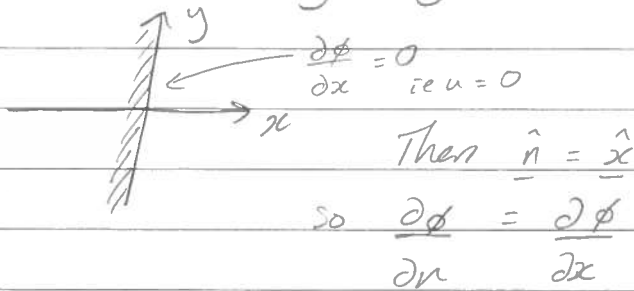 y
∂ϕ/∂x = 0
ie u = 0
x
Then n̂ = x̂
so ∂ϕ/∂n = ∂ϕ/∂x